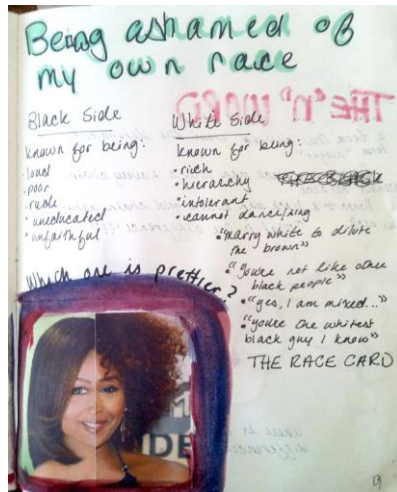 Being ashamed of
my own race
THE 'N' WORD
Black Side
known for being:
• loud
• poor
• rude
• uneducated
• unfaithful
White Side
known for being:
• rich
• hierarchy
• intolerant
• cannot dance/sing
• "marry white to dilute
the brown"
• "you're not like other
black people"
• "yes, I am mixed..."
• "you're the whitest
black guy I know"
THE RACE CARD
which one is prettier?
DE
19